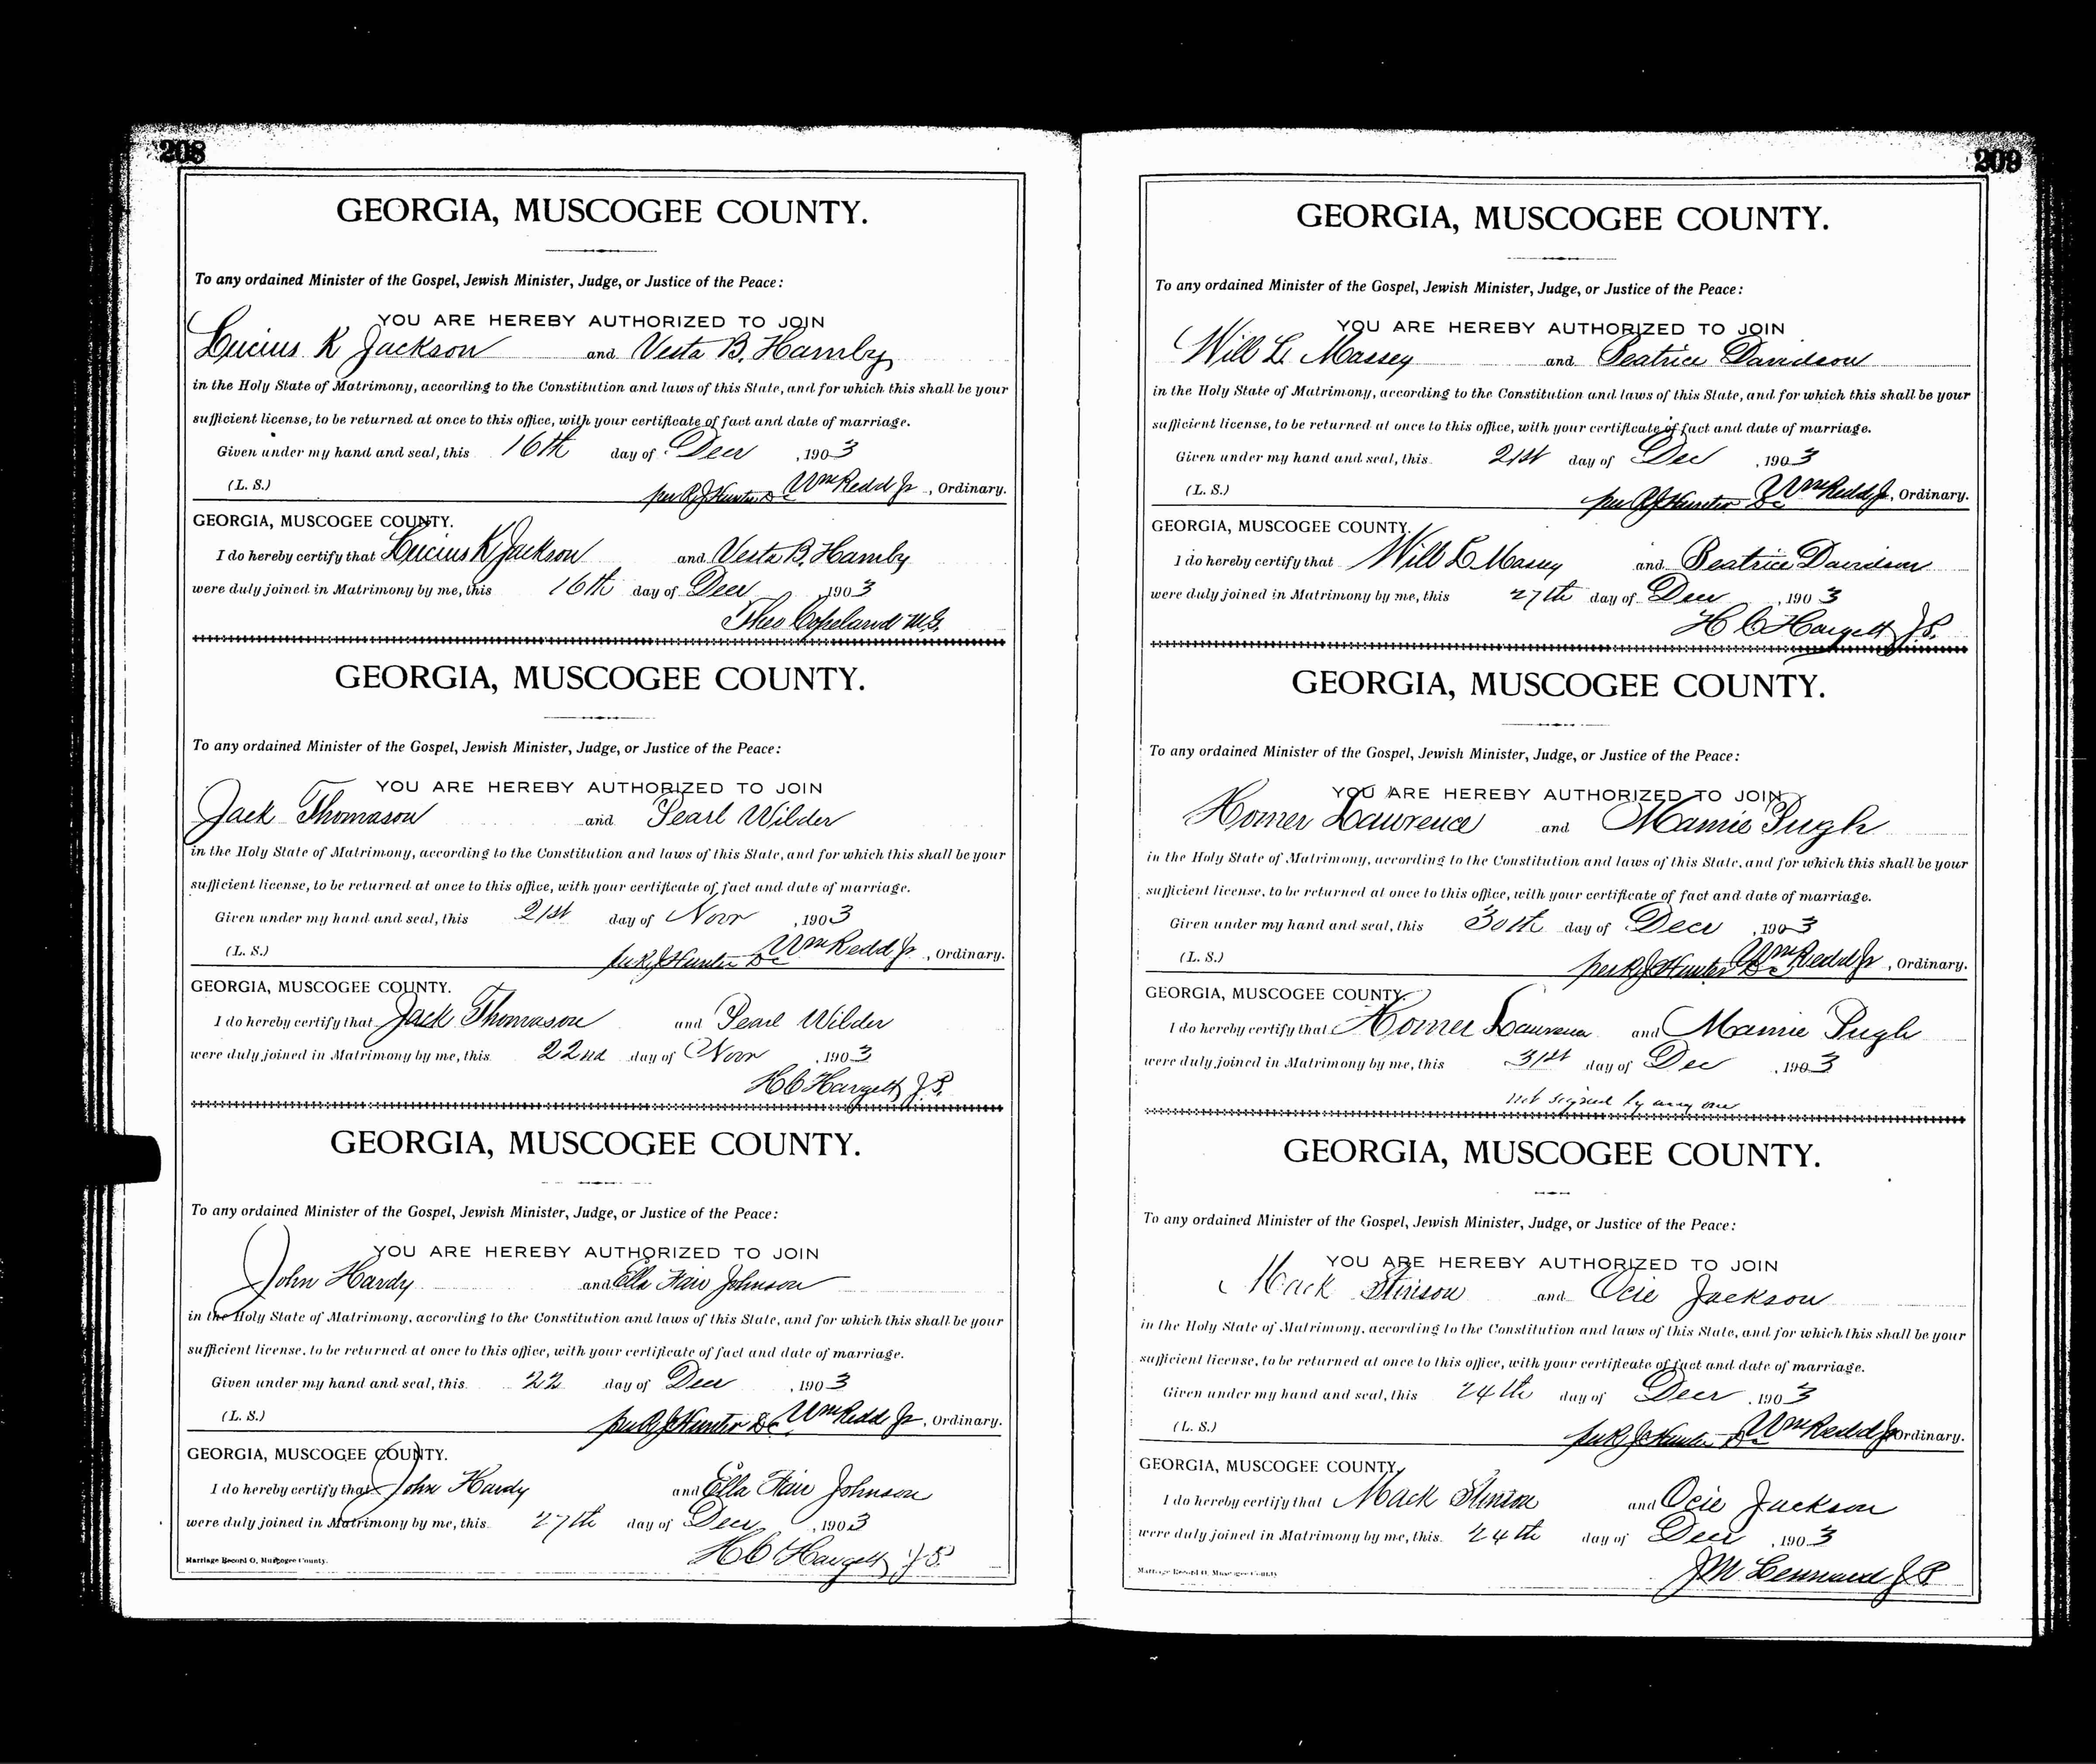 208
GEORGIA, MUSCOGEE COUNTY.
To any ordained Minister of the Gospel, Jewish Minister, Judge, or Justice of the Peace:
YOU ARE HEREBY AUTHORIZED TO JOIN
Lucius K Jackson and Vesta B. Hamby
in the Holy State of Matrimony, according to the Constitution and laws of this State, and for which this shall be your
sufficient license, to be returned at once to this office, with your certificate of fact and date of marriage.
Given under my hand and seal, this 16th day of Decr , 1903
(L. S.) per R J Hunter D C Wm Redd Jr , Ordinary.
GEORGIA, MUSCOGEE COUNTY.
I do hereby certify that Lucius K Jackson and Vesta B. Hamby
were duly joined in Matrimony by me, this 16th day of Decr , 1903
Theo Copeland M.G.
GEORGIA, MUSCOGEE COUNTY.
To any ordained Minister of the Gospel, Jewish Minister, Judge, or Justice of the Peace:
YOU ARE HEREBY AUTHORIZED TO JOIN
Jack Thomason and Pearl Wilder
in the Holy State of Matrimony, according to the Constitution and laws of this State, and for which this shall be your
sufficient license, to be returned at once to this office, with your certificate of fact and date of marriage.
Given under my hand and seal, this 21st day of Novr , 1903
(L. S.) per R J Hunter D C Wm Redd Jr , Ordinary.
GEORGIA, MUSCOGEE COUNTY.
I do hereby certify that Jack Thomason and Pearl Wilder
were duly joined in Matrimony by me, this 22nd day of Novr , 1903
H C Hargett J.P.
GEORGIA, MUSCOGEE COUNTY.
To any ordained Minister of the Gospel, Jewish Minister, Judge, or Justice of the Peace:
YOU ARE HEREBY AUTHORIZED TO JOIN
John Hardy and Ella Fair Johnson
in the Holy State of Matrimony, according to the Constitution and laws of this State, and for which this shall be your
sufficient license, to be returned at once to this office, with your certificate of fact and date of marriage.
Given under my hand and seal, this 22 day of Decr , 1903
(L. S.) per R J Hunter D C Wm Redd Jr , Ordinary.
GEORGIA, MUSCOGEE COUNTY.
I do hereby certify that John Hardy and Ella Fair Johnson
were duly joined in Matrimony by me, this 27th day of Decr , 1903
H C Hargett J P.
Marriage Record O, Muscogee County.
209
GEORGIA, MUSCOGEE COUNTY.
To any ordained Minister of the Gospel, Jewish Minister, Judge, or Justice of the Peace:
YOU ARE HEREBY AUTHORIZED TO JOIN
Will L. Massey and Beatrice Davidson
in the Holy State of Matrimony, according to the Constitution and laws of this State, and for which this shall be your
sufficient license, to be returned at once to this office, with your certificate of fact and date of marriage.
Given under my hand and seal, this 21st day of Dec , 1903
(L. S.) per R J Hunter D C Wm Redd Jr , Ordinary.
GEORGIA, MUSCOGEE COUNTY.
I do hereby certify that Will L Massey and Beatrice Davidson
were duly joined in Matrimony by me, this 27th day of Decr , 1903
H C Hargett J.P.
GEORGIA, MUSCOGEE COUNTY.
To any ordained Minister of the Gospel, Jewish Minister, Judge, or Justice of the Peace:
YOU ARE HEREBY AUTHORIZED TO JOIN
Homer Lawrence and Mamie Pugh
in the Holy State of Matrimony, according to the Constitution and laws of this State, and for which this shall be your
sufficient license, to be returned at once to this office, with your certificate of fact and date of marriage.
Given under my hand and seal, this 30th day of Decr , 1903
(L. S.) per R J Hunter D C Wm Redd Jr , Ordinary.
GEORGIA, MUSCOGEE COUNTY.
I do hereby certify that Homer Lawrence and Mamie Pugh
were duly joined in Matrimony by me, this 31st day of Dec , 1903
not signed by any one
GEORGIA, MUSCOGEE COUNTY.
To any ordained Minister of the Gospel, Jewish Minister, Judge, or Justice of the Peace:
YOU ARE HEREBY AUTHORIZED TO JOIN
Mack Stinson and Ocie Jackson
in the Holy State of Matrimony, according to the Constitution and laws of this State, and for which this shall be your
sufficient license, to be returned at once to this office, with your certificate of fact and date of marriage.
Given under my hand and seal, this 24th day of Decr , 1903
(L. S.) per R J Hunter D C Wm Redd Jr Ordinary.
GEORGIA, MUSCOGEE COUNTY.
I do hereby certify that Mack Stinson and Ocie Jackson
were duly joined in Matrimony by me, this 24th day of Decr , 1903
J M Lennard J P
Marriage Record O, Muscogee County